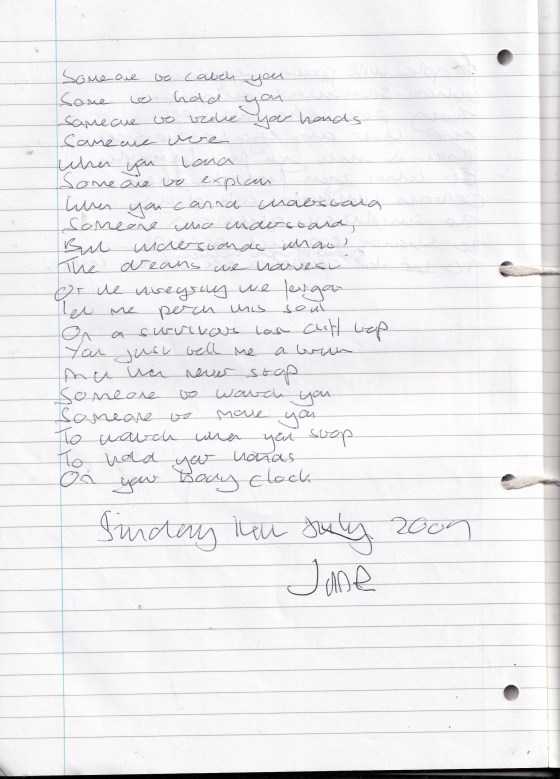 Someone to catch you
Some to hold you
Someone to take your hands
Someone there
When you land
Someone to explain
When you cannot understand
Someone who understands,
But understands what?
The dreams we harvest
Or the we forgot
Let me perch this soul
On a survivors last cliff top
You just tell me a
And then never stop
Someone to watch you
Someone to move you
To watch when you stop
To hold your hands
On your body clock
Sunday July 2009